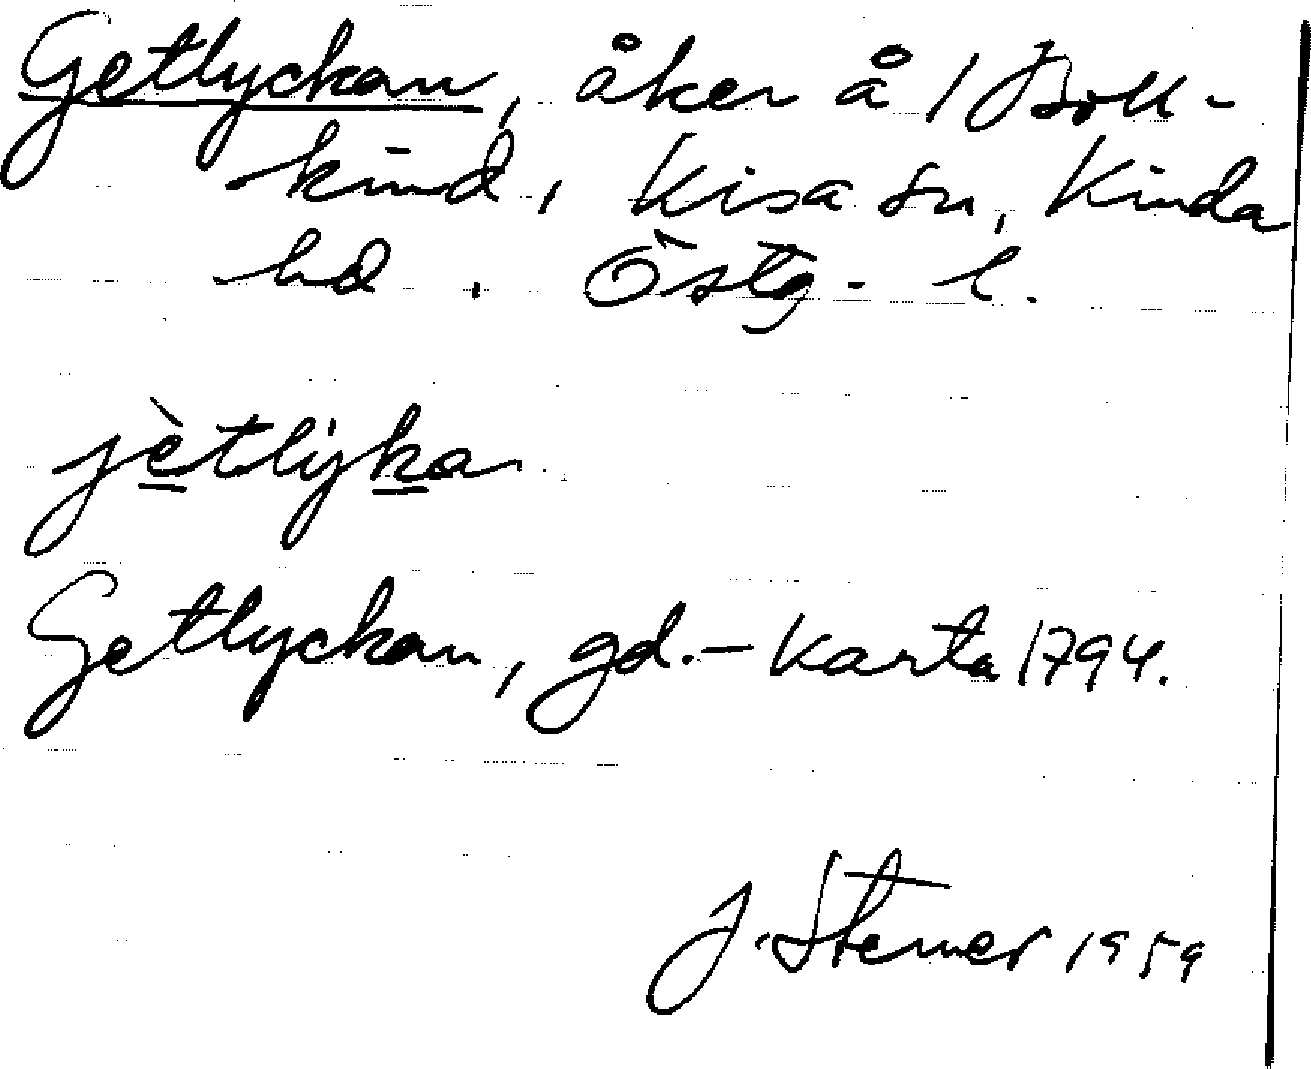 Getlyckan, åker å 1 Boll-
kind, Kisa sn, Kinda
hd. Östg. l.
jètlýka
Getlyckan, gd. – Karta 1794.
J. Sterner 1959